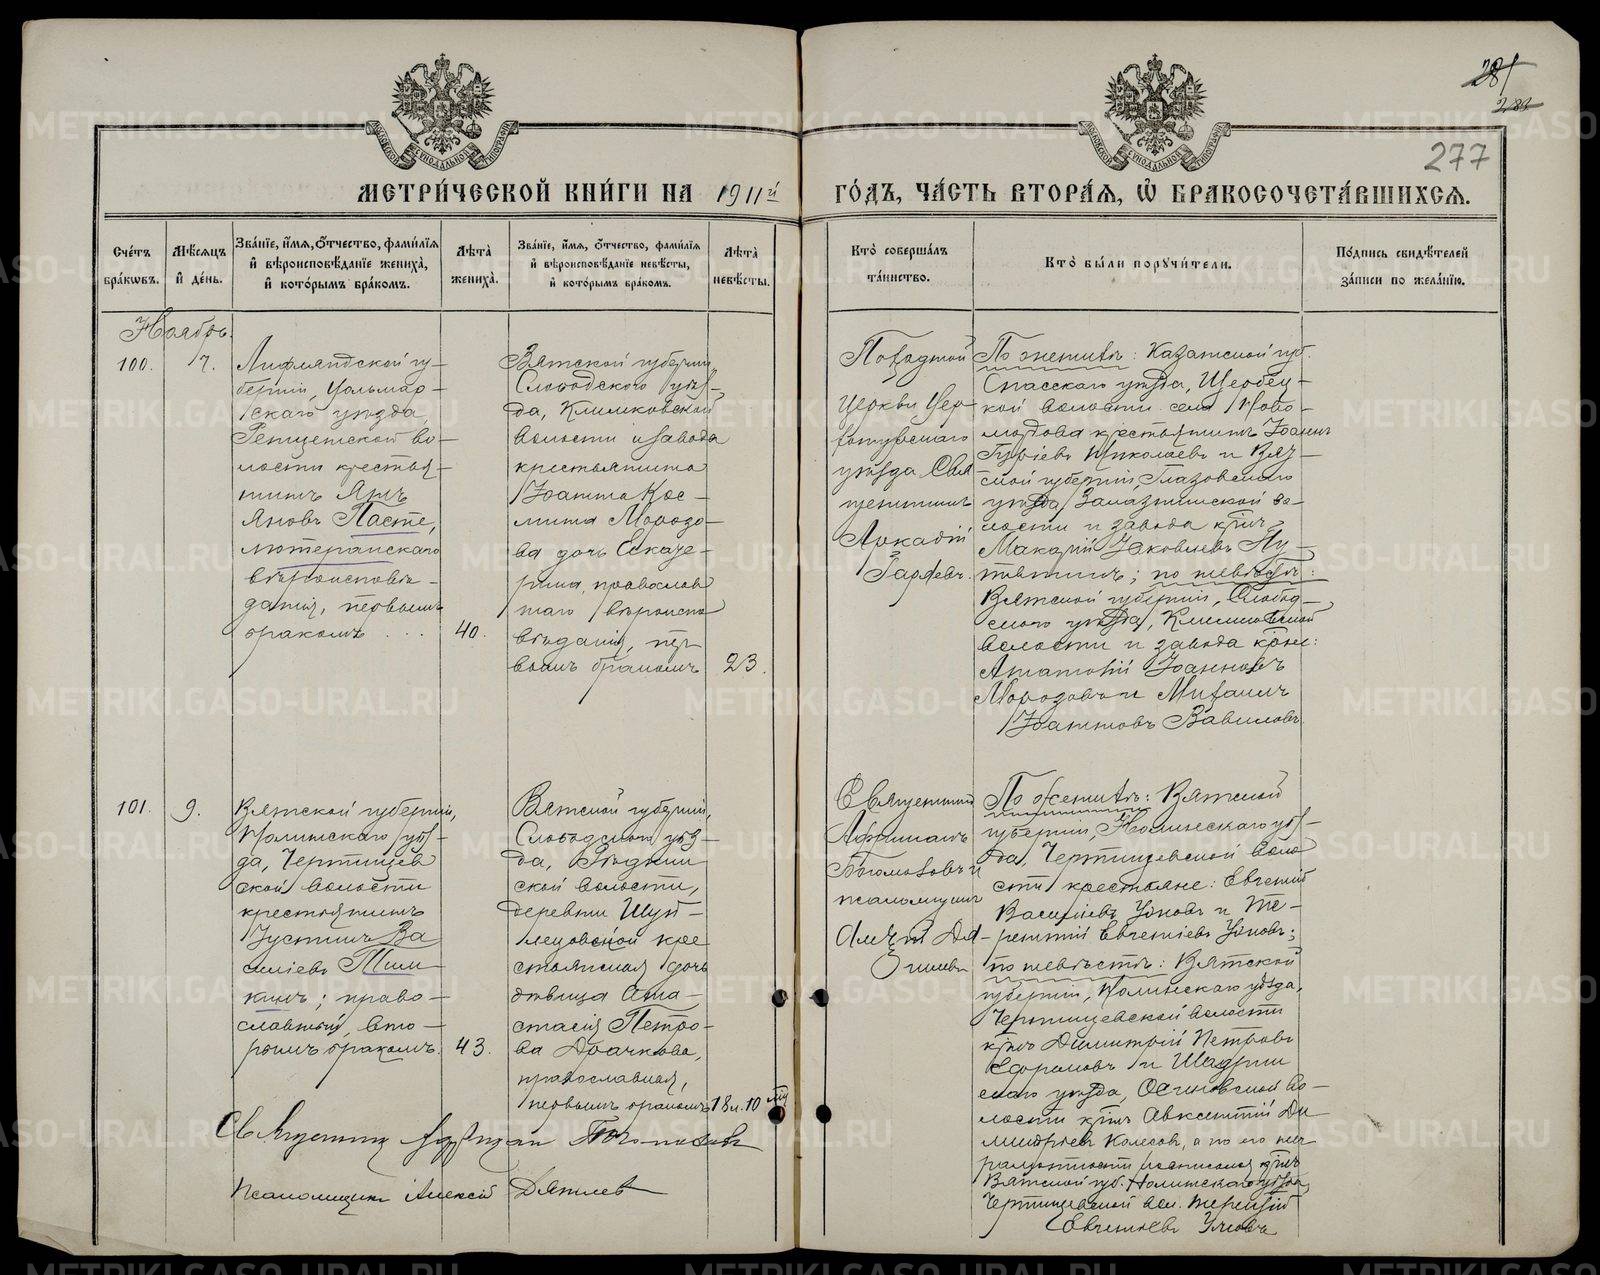 281
282
277
МЕТРИ́ЧЕСКОЙ КНИ́ГИ НА 1911й ГО́ДЪ, ЧА́СТЬ ВТОРА́Я, Ѡ БРАКОСОЧЕТА́ВШИХСЯ.
Сче́тъ бра́кωвъ.
Мѣ́сяцъ и҆ де́нь.
Зва́нїе, и҆́мя, ѻ҆́тчество, фами́лїя
и҆ вѣроисповѣ́данїе жениха̀,
и҆ кото́рымъ бра́комъ.
Лѣта̀ жениха̀.
Зва́нїе, и҆́мя, ѻ҆́тчество, фами́лїя
и҆ вѣроисповѣ́данїе невѣ́сты,
и҆ кото́рымъ бра́комъ.
Лѣта̀ невѣ́сты.
Кто̀ соверша́лъ та́инство.
Кто̀ бы́ли поручи́тели.
По́дпись свидѣ́телей за́писи по жела́нїю.
Ноябрь.
100.
7.
Лифляндской гу-
берніи, Вольмар-
скаго уѣзда,
во-
лости крестья-
нинъ Янъ
Яновъ Пасте,
лютеранскаго
вѣроисповѣ-
данія, первымъ
бракомъ . . .
40.
Вятской губерніи
Слободского уѣз-
да, Климковской
волости и завода
крестьянина
Іоанна Кос-
мина Морозо-
ва дочь Екате-
рина, православ
наго вѣроиспо
вѣданія, пер
вымъ бракомъ
23.
Походной
Церкви Вер-
хотурскаго
уѣзда Свя
щенникъ
Аркадій
Гаряевъ.
По женихѣ: Казанской губ.
Спасскаго уѣзда,
кой волости села Ново-
мордова крестьянинъ Іоаннъ
Гурьевъ Николаевъ и Вят-
ской губерніи, Глазовскаго
уѣзда, Залазнинской во-
лости и завода кр-нъ
Макарій Яковлевъ Пу-
тятинъ; по невѣстѣ:
Вятской губерніи, Слобод-
ского уѣзда, Климковской
волости и завода кр-не:
Анатолій Іоанновъ
Морозовъ и Михаилъ
Іоанновъ Вавиловъ.
101.
9.
Вятской губерніи,
Нолинскаго уѣз-
да, Чертищев
ской волости
крестьянинъ
Іустинъ Ва
силіевъ Тим-
кинъ; право-
славный, вто-
рымъ бракомъ.
43.
Вятской губерніи,
Слободского уѣз-
да,
ской волости,
деревни
кре
стьянская дочь
дѣвица Ана-
стасія Петро-
ва Драчкова,
православная,
первымъ бракомъ
18 л. 10 м.
Священникъ
Адріанъ
Богомоловъ и
псаломщикъ
Алексій Дя-
гилевъ
По женихѣ: Вятской
губерніи, Нолинскаго уѣз-
да, Чертищевской воло
сти крестьяне: Евгеній
Васильевъ и Те-
рентій Евгеніевъ
по невѣстѣ: Вятской
губерніи, Нолинскаго уѣзда,
Чертищевской волости
кр-нъ Димитрій Петровъ
Ефремовъ и Шадрин
скаго уѣзда, Осиновской во-
лости кр-нъ Авксентій Ди
митріевъ Колесовъ, а по его не
грамотности росписался кр-нъ
Вятской губ. Нолинскаго уѣзда,
Чертищевской вол. Терентій
Евгеніевъ
Священникъ Адріанъ Богомоловъ
Псаломщикъ Алексій Дягилевъ